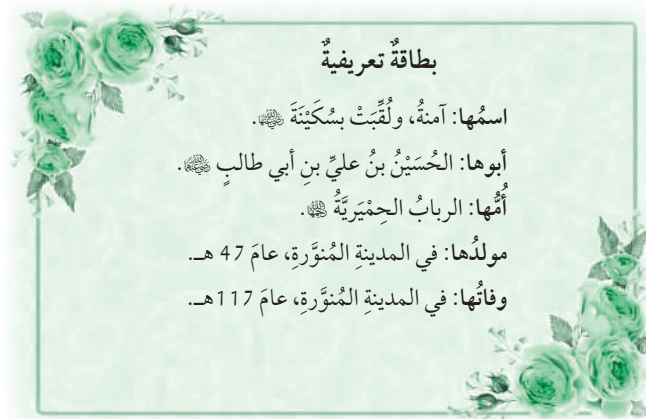 بطاقةٌ تعريفيةٌ
اسمُها: آمنةُ، ولُقِّبَتْ بسُكَيْنَةَ رضي الله عنها.
أبوها: الحُسَيْنُ بنُ عليِّ بنِ أبي طالبٍ رضي الله عنهما.
أُمُّها: الربابُ الحِمْيَريَّةُ.
مولدُها: في المدينةِ المُنوَّرةِ، عامَ 47 هـ.
وفاتُها: في المدينةِ المُنوَّرةِ، عامَ 117هـ.